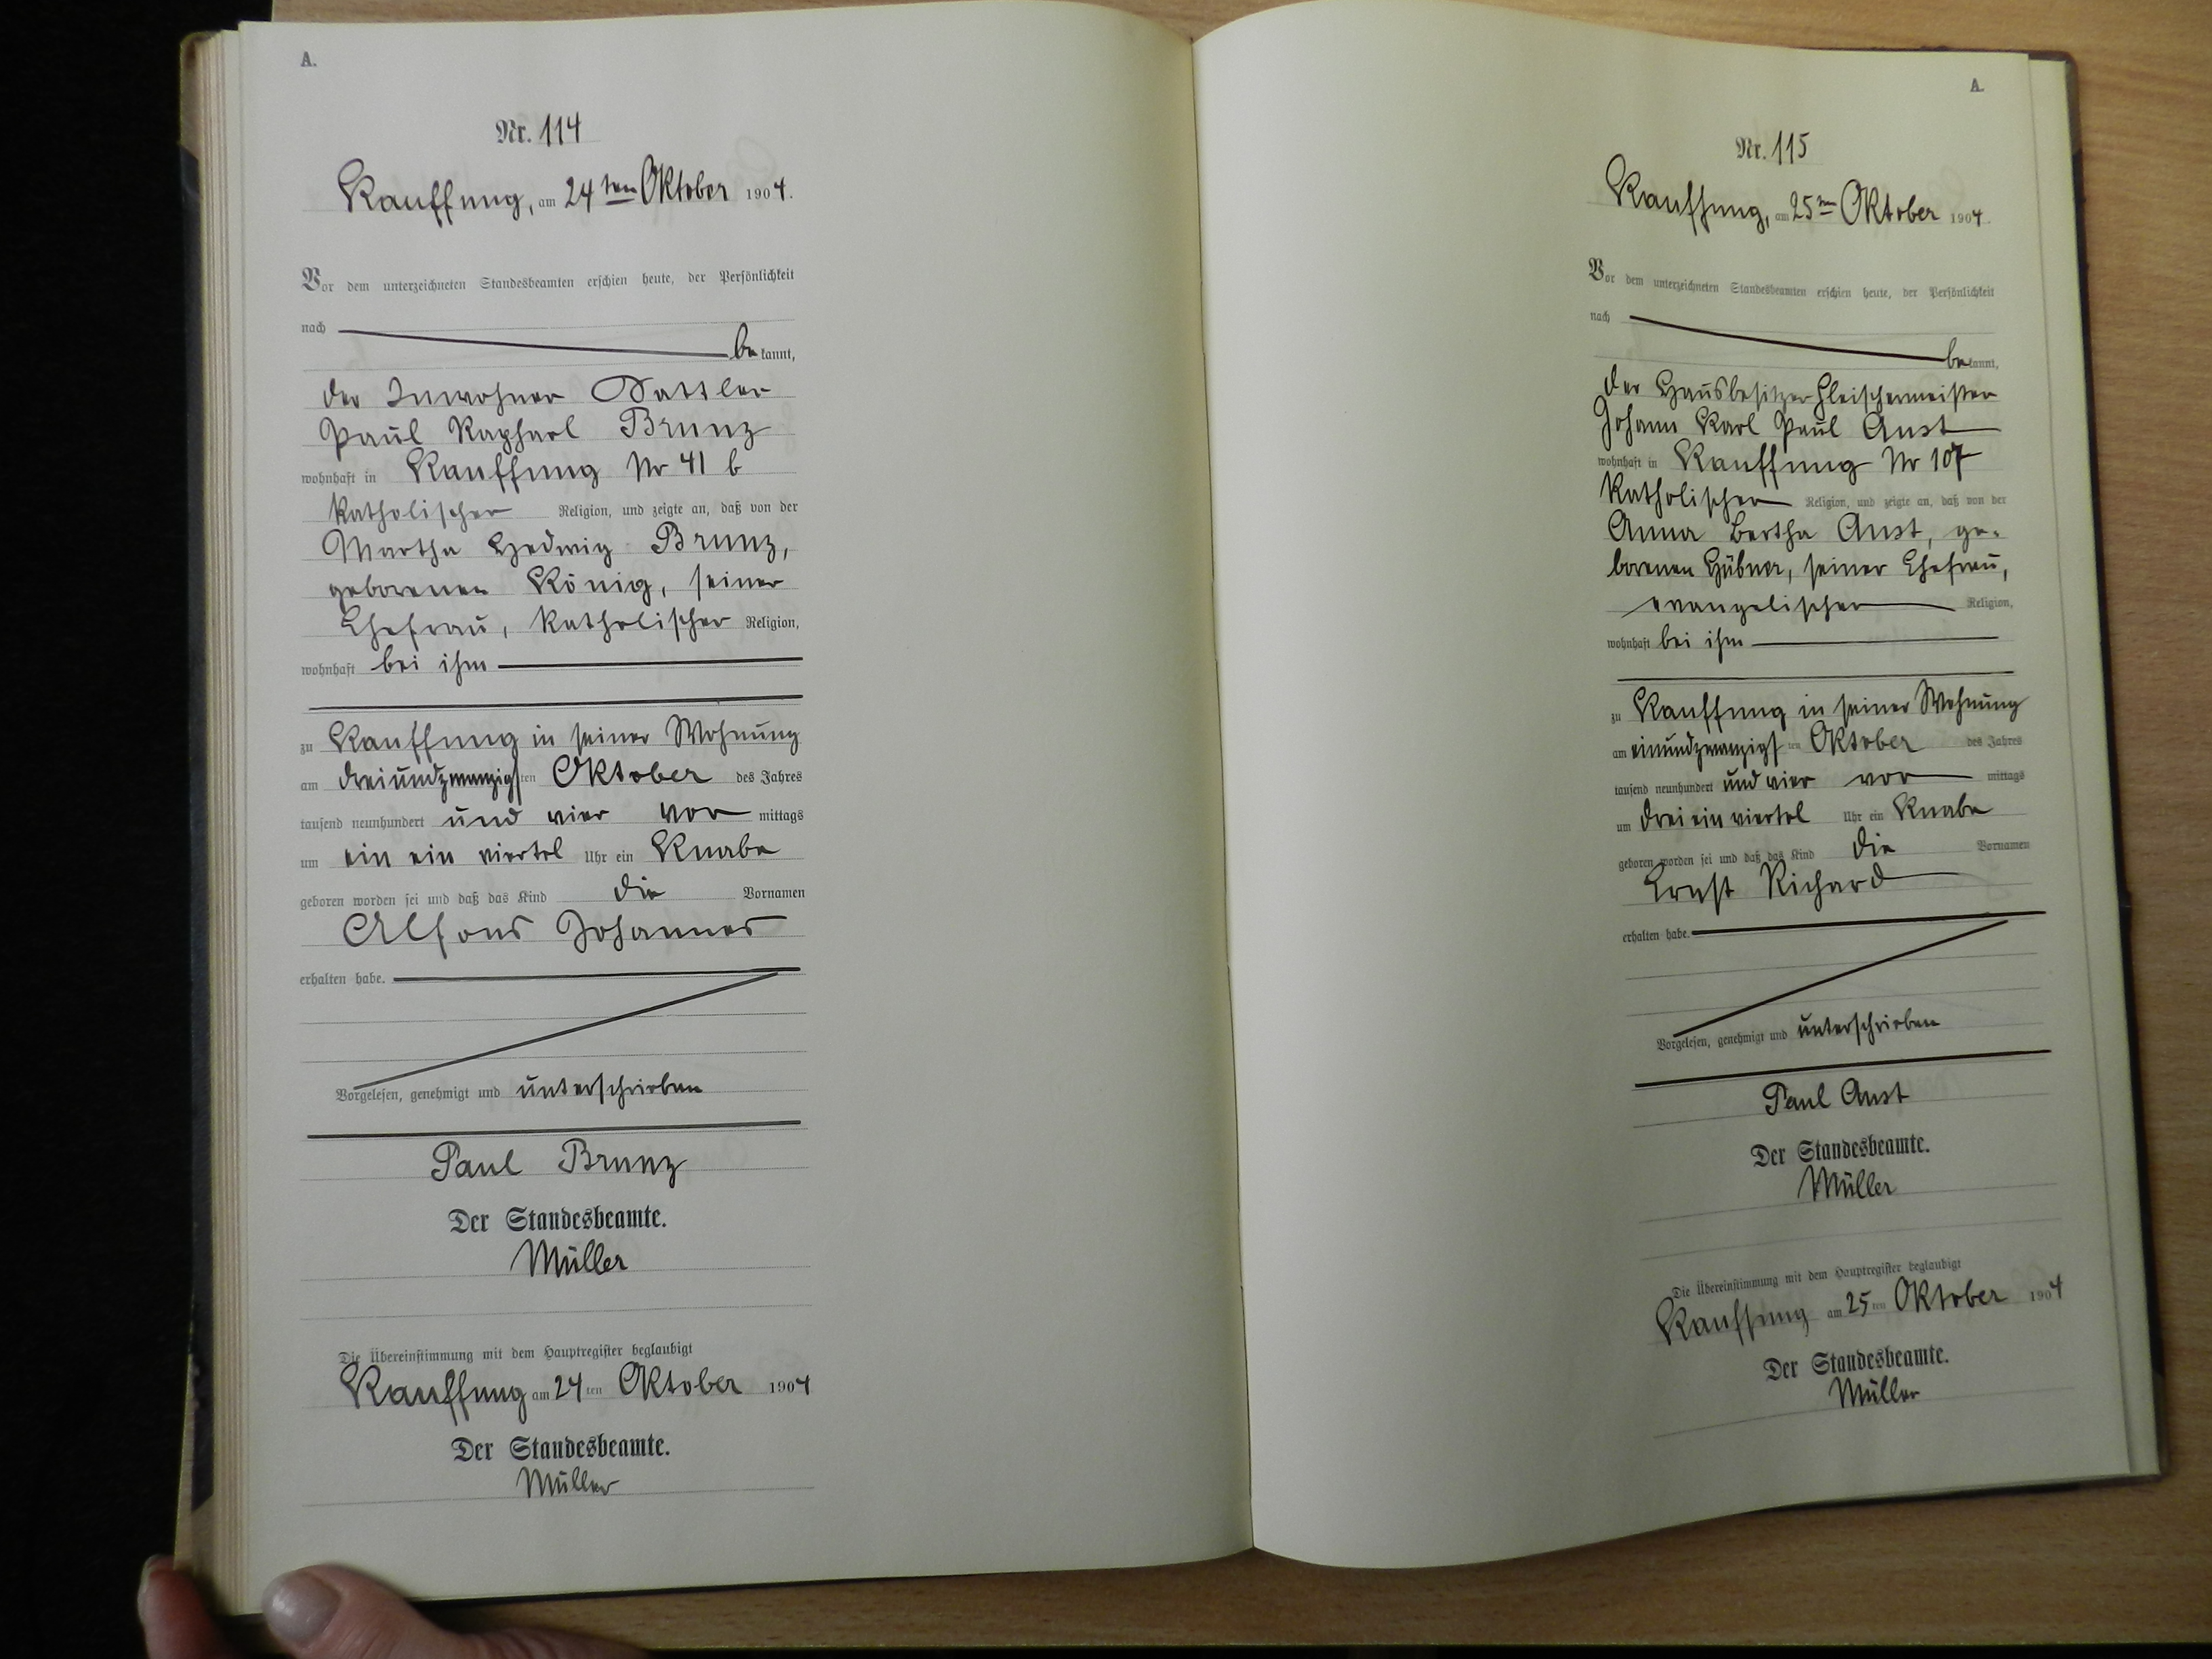 A.
Nr. 114
Kauffung, am 24ten Oktober 1904.
Vor dem unterzeichneten Standesbeamten erschien heute, der Persönlichkeit
nach
bekannt,
der Inwohner Sattler
Paul Raphael Brunz
wohnhaft in Kauffung Nr 41 b
katholischer Religion, und zeigte an, daß von der
Martha Hedwig Brunz,
geborenen König, seiner
Ehefrau, katholischer Religion,
wohnhaft bei ihm
zu Kauffung in seiner Wohnung
am dreiundzwanzigsten Oktober des Jahres
tausend neunhundert und vier vor mittags
um ein ein viertel Uhr ein Knabe
geboren worden sei und daß das Kind die Vornamen
Alfons Johannes
erhalten habe.
Vorgelesen, genehmigt und unterschrieben
Paul Brunz
Der Standesbeamte.
Müller
Die Übereinstimmung mit dem Hauptregister beglaubigt
Kauffung am 24ten Oktober 1904
Der Standesbeamte.
Müller
A.
Nr. 115
Kauffung, am 25ten Oktober 1904.
Vor dem unterzeichneten Standesbeamten erschien heute, der Persönlichkeit
nach
bekannt,
der Hausbesitzer Fleischermeister
Johann Karl Paul Aust
wohnhaft in Kauffung Nr 107
katholischer Religion, und zeigte an, daß von der
Anna Bertha Aust, ge-
borenen Hübner, seiner Ehefrau,
evangelischer Religion,
wohnhaft bei ihm
zu Kauffung in seiner Wohnung
am einundzwanzigsten Oktober des Jahres
tausend neunhundert und vier vor mittags
um drei ein viertel Uhr ein Knabe
geboren worden sei und daß das Kind die Vornamen
Ernst Richard
erhalten habe.
Vorgelesen, genehmigt und unterschrieben
Paul Aust
Der Standesbeamte.
Müller
Die Übereinstimmung mit dem Hauptregister beglaubigt
Kauffung am 25ten Oktober 1904
Der Standesbeamte.
Müller